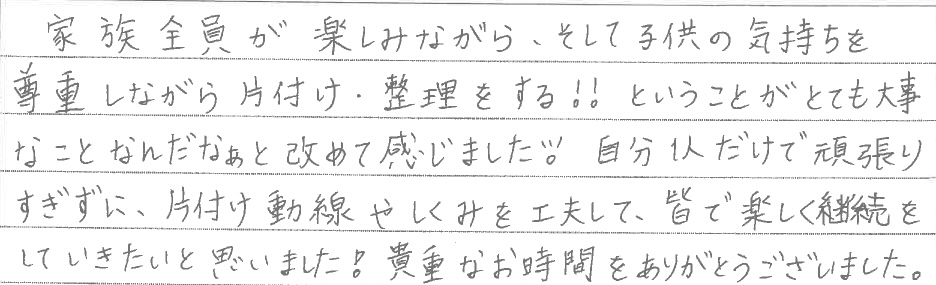 家族全員が楽しみながら、そして子供の気持ちを
尊重しながら片付け・整理をする!! ということがとても大事
なことなんだなぁと改めて感じました!! 自分1人だけで頑張り
すぎずに、片付け動線やしくみを工夫して、皆で楽しく継続を
していきたいと思いました! 貴重なお時間をありがとうございました。